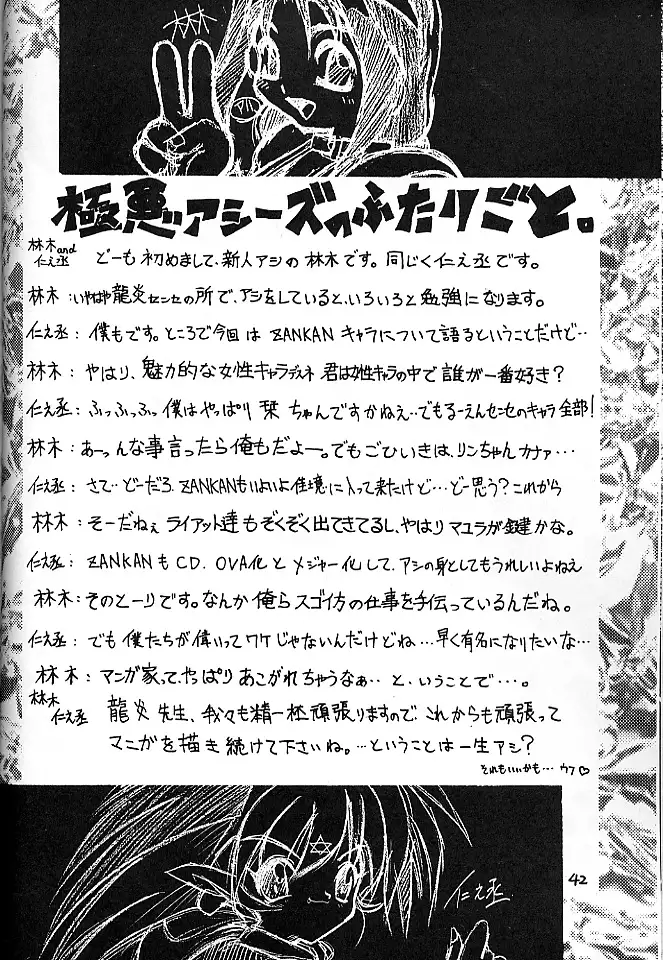 林林
極悪アシーズのふたりごと。
林木and仁え丞 どーも初めまして、新人アシの林木です。同じく仁え丞です。
林木:いやはや龍炎センセの所で、アシをしていると、いろいろと勉強になります。
仁え丞:僕もです。ところで今回は ZANKAN キャラについて語るということだけど‥
林木:やはり、魅力的な女性キャラデスネ 君は女性キャラの中で誰が一番好き?
仁え丞:ふっふっふっ僕はやっぱり 栞 ちゃんですかねえ‥でもるーえんセンセのキャラ全部!
林木:あーっ、んな事言ったら俺もだよー。でもごひいきは、リンちゃんカナァ…
仁え丞:さて‥どーだろ、ZANKANもいよいよ佳境に入って来たけど…どー思う?これから
林木:そーだねぇ ライアット達もぞくぞく出てきてるし、やはりマユラが鍵かな。
仁え丞:ZANKANも CD、OVA化と メジャー化して、アシの身としてもうれしいよねえ
林木:そのとーりです。なんか俺らスゴイ方の仕事を手伝っているんだね。
仁え丞:でも僕たちが偉いってワケじゃないんだけどね…早く有名になりたいな…
林木:マンガ家って、やっぱりあこがれちゃうなぁ‥ と、いうことで…。
林木 仁え丞 龍炎 先生、我々も精一杯頑張りますので、これからも頑張って
マンガを描き続けて下さいね。…ということは一生アシ?
それもいいかも… ウフ♡
42
仁え丞